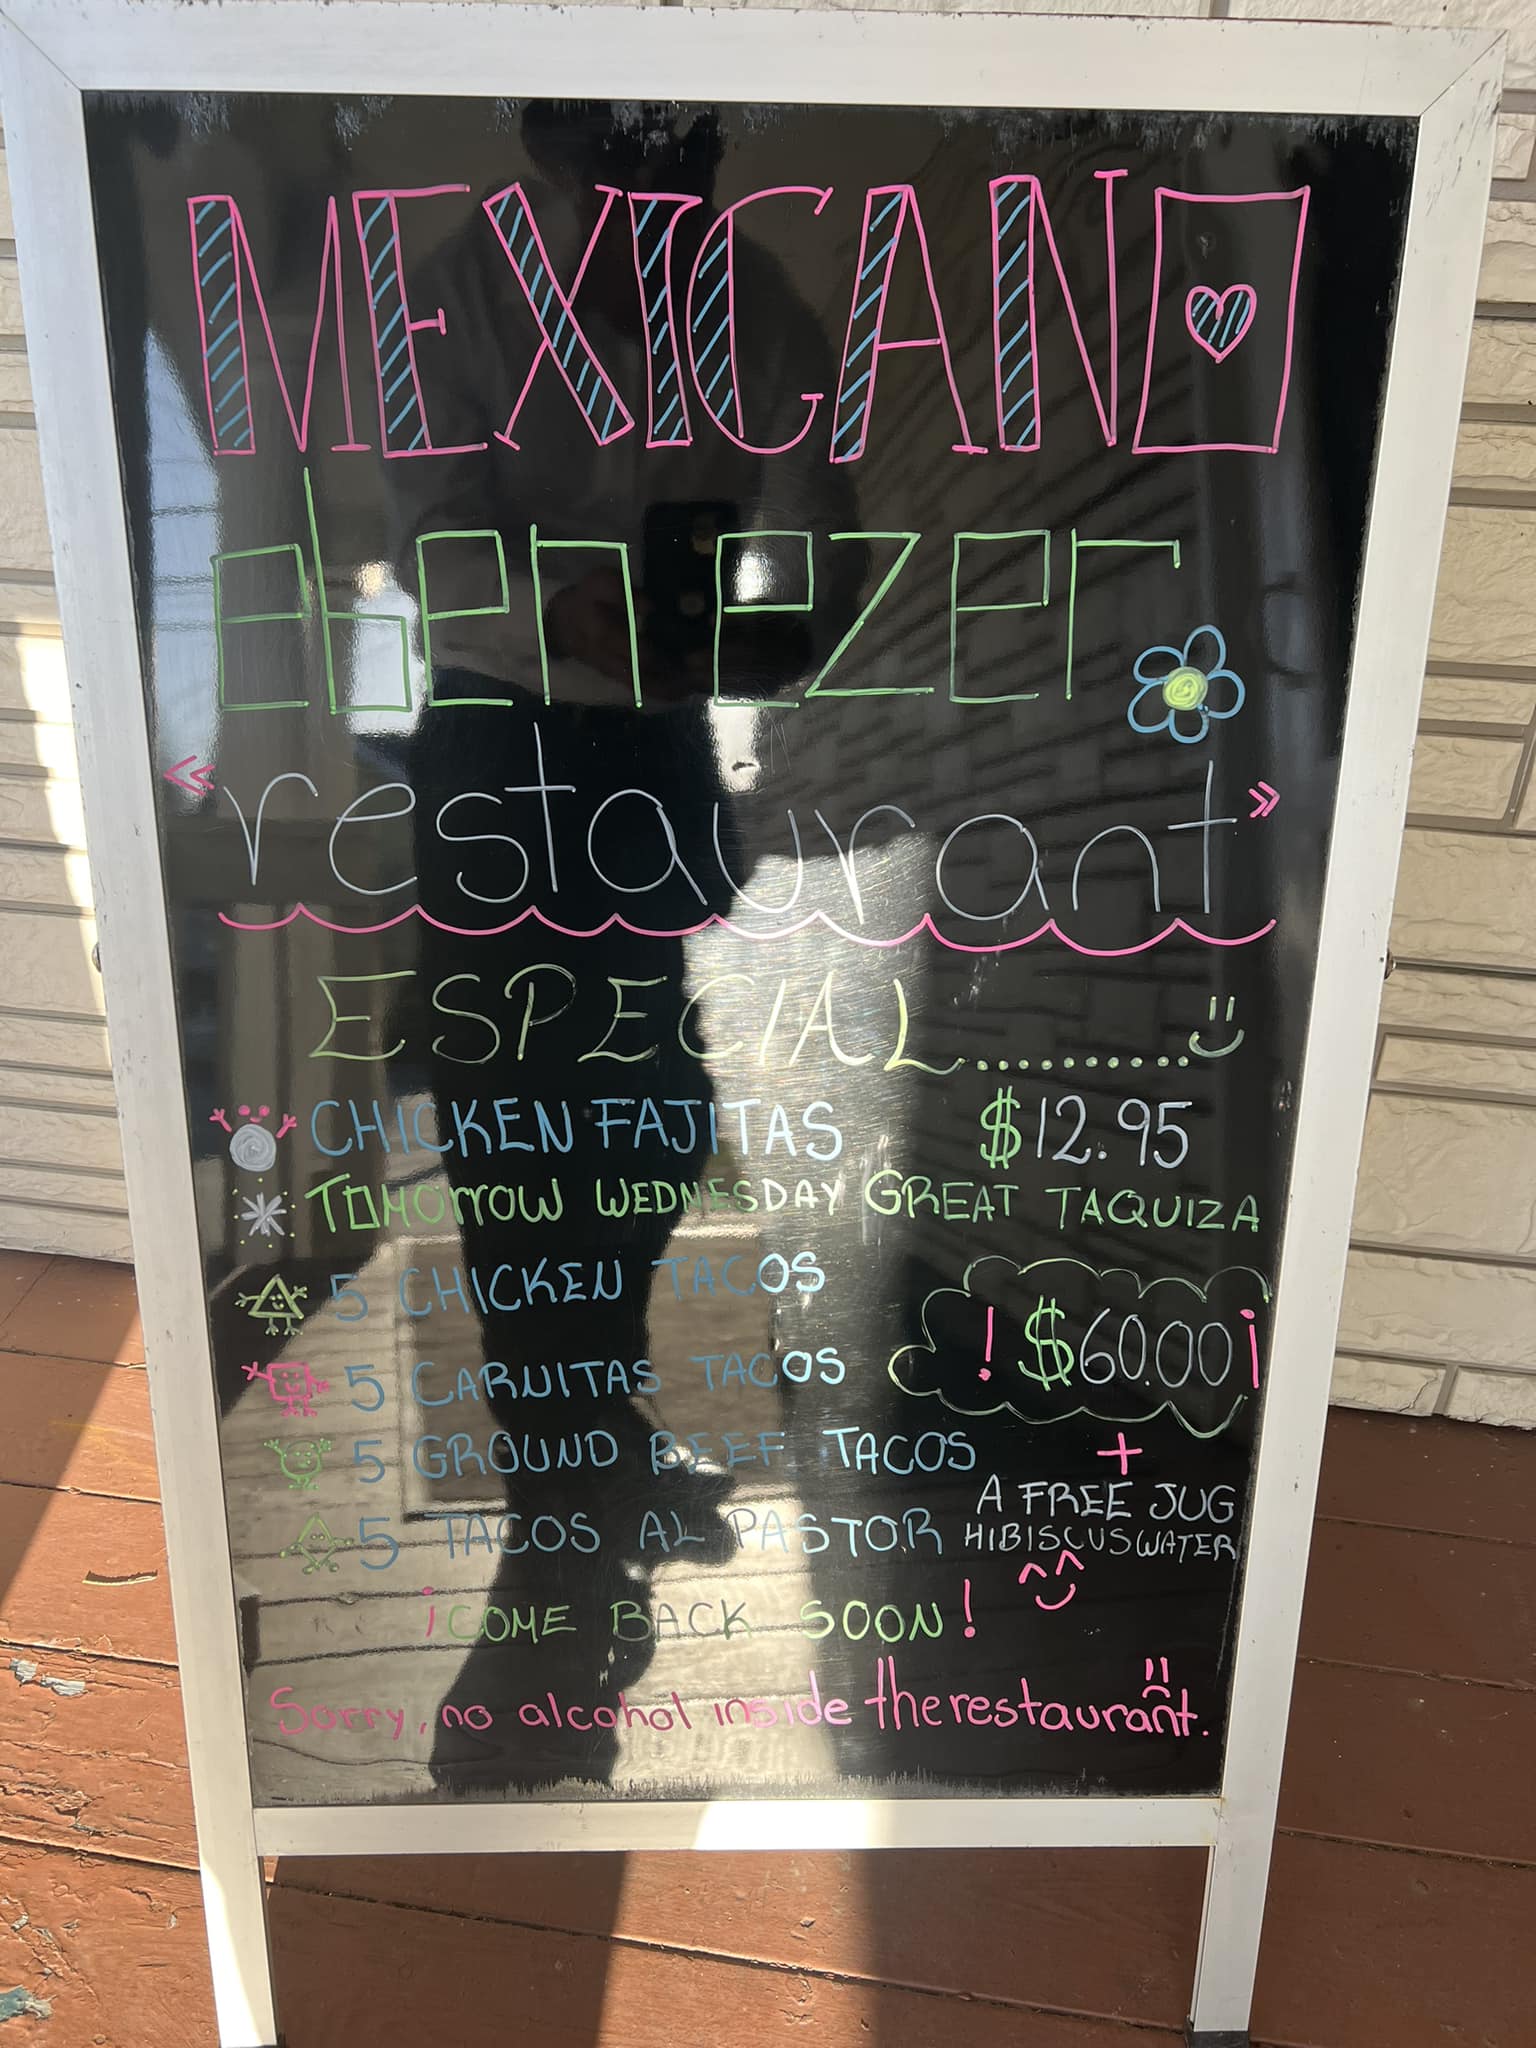 MEXICANO
ebenezer
«restaurant»
ESPECIAL..........
CHICKEN FAJITAS $12.95
TOMOrrOW WEDNESDAY GREAT TAQUIZA
5 CHICKEN TACOS
! $60.00 ¡
5 CARNITAS TACOS
5 GROUND BEEF TACOS
+
A FREE JUG
5 TACOS AL PASTOR
HIBISCUS WATER
¡COME BACK SOON!
Sorry, no alcohol inside the restaurant.